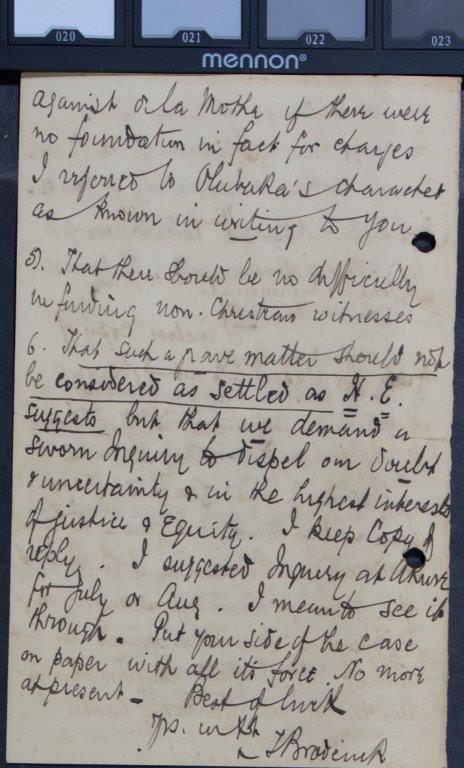 020 021 022 023
mennon®
against de la Mothe if there were
no foundation in fact for charges
I referred to Olubaka's character
as known in writing to you
5). That there should be no difficulty
in finding non-Christian witnesses
6. That such a grave matter should not
be considered as settled as H. E.
suggests but that we demand a
sworn Inquiry to dispel our doubt
& uncertainty & in the highest interests
of justice & Equity. I keep Copy of
reply. I suggested Inquiry at Akure
for July or Aug. I mean to see it
through. Put your side of the case
on paper with all its force. No more
at present — Best of luck
Yrs. in
T Broderick